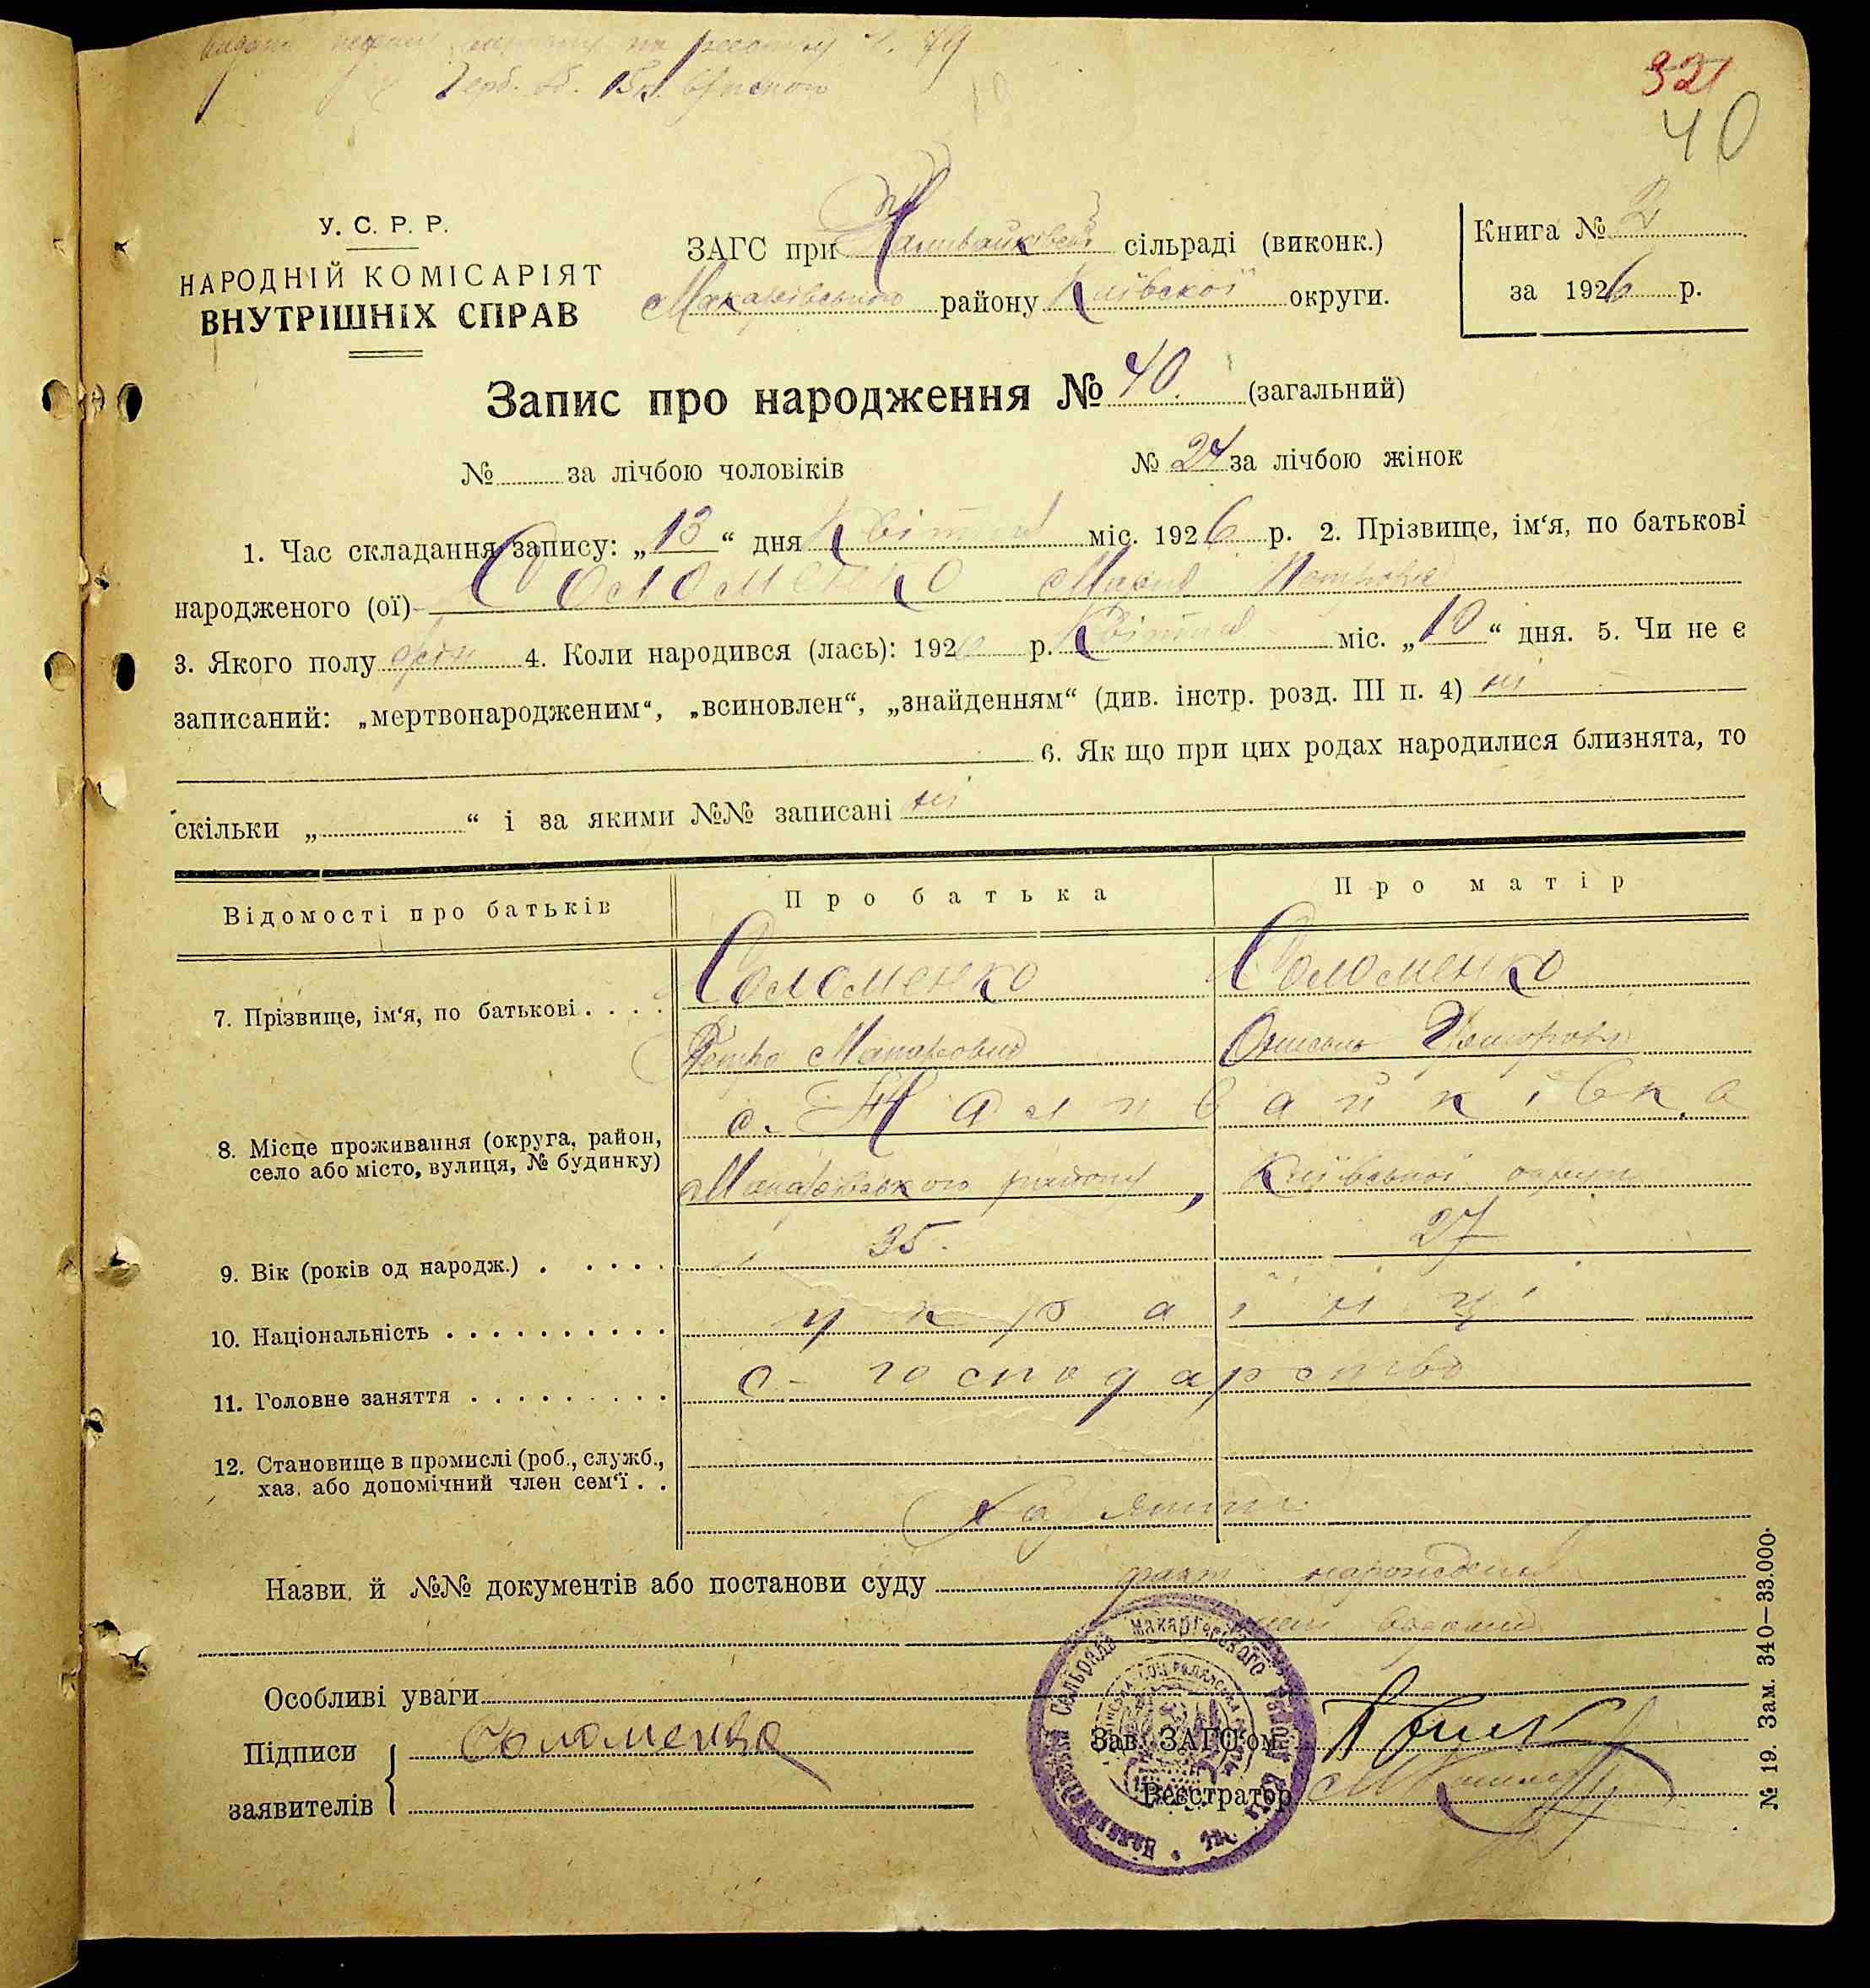 321
40
У. С. Р. Р.
НАРОДНІЙ КОМІСАРІЯТ
ВНУТРІШНІХ СПРАВ
ЗАГС при Наливайківській сільраді (виконк.)
Макарівського району Київської округи.
Книга № 2
за 1926 р.
Запис про народження № 40. (загальний)
№ за лічбою чоловіків
№ 24 за лічбою жінок
1. Час складання запису: „13“ дня Квітня міс. 1926 р. 2. Прізвище, ім‘я, по батькові
народженого (ої) Соломенко Марія Петровна
3. Якого полу жін 4. Коли народився (лась): 1926 р. Квітня міс. „10“ дня. 5. Чи не є
записаний: „мертвонародженим“, „всиновлен“, „знайденням“ (див. інстр. розд. III п. 4) ні
6. Як що при цих родах народилися близнята, то
скільки „ “ і за якими №№ записані ні
Відомості про батьків
Про батька
Про матір
7. Прізвище, ім‘я, по батькові
Соломенко
Соломенко
Петро Макарович
8. Місце проживання (округа, район,
село або місто, вулиця, № будинку)
с. Наливайківка
Макарівського району, Київської округи
9. Вік (років од народж.)
35.
27
10. Національність
українці
11. Головне заняття
с-господарство
12. Становище в промислі (роб., служб.,
хаз. або допомічний член сем‘ї
Назви й №№ документів або постанови суду факт народження
Особливі уваги
Підписи
заявителів
Соломенко
Зав. ЗАГС‘ом
Реєстратор
№ 19. Зам. 340—33.000.